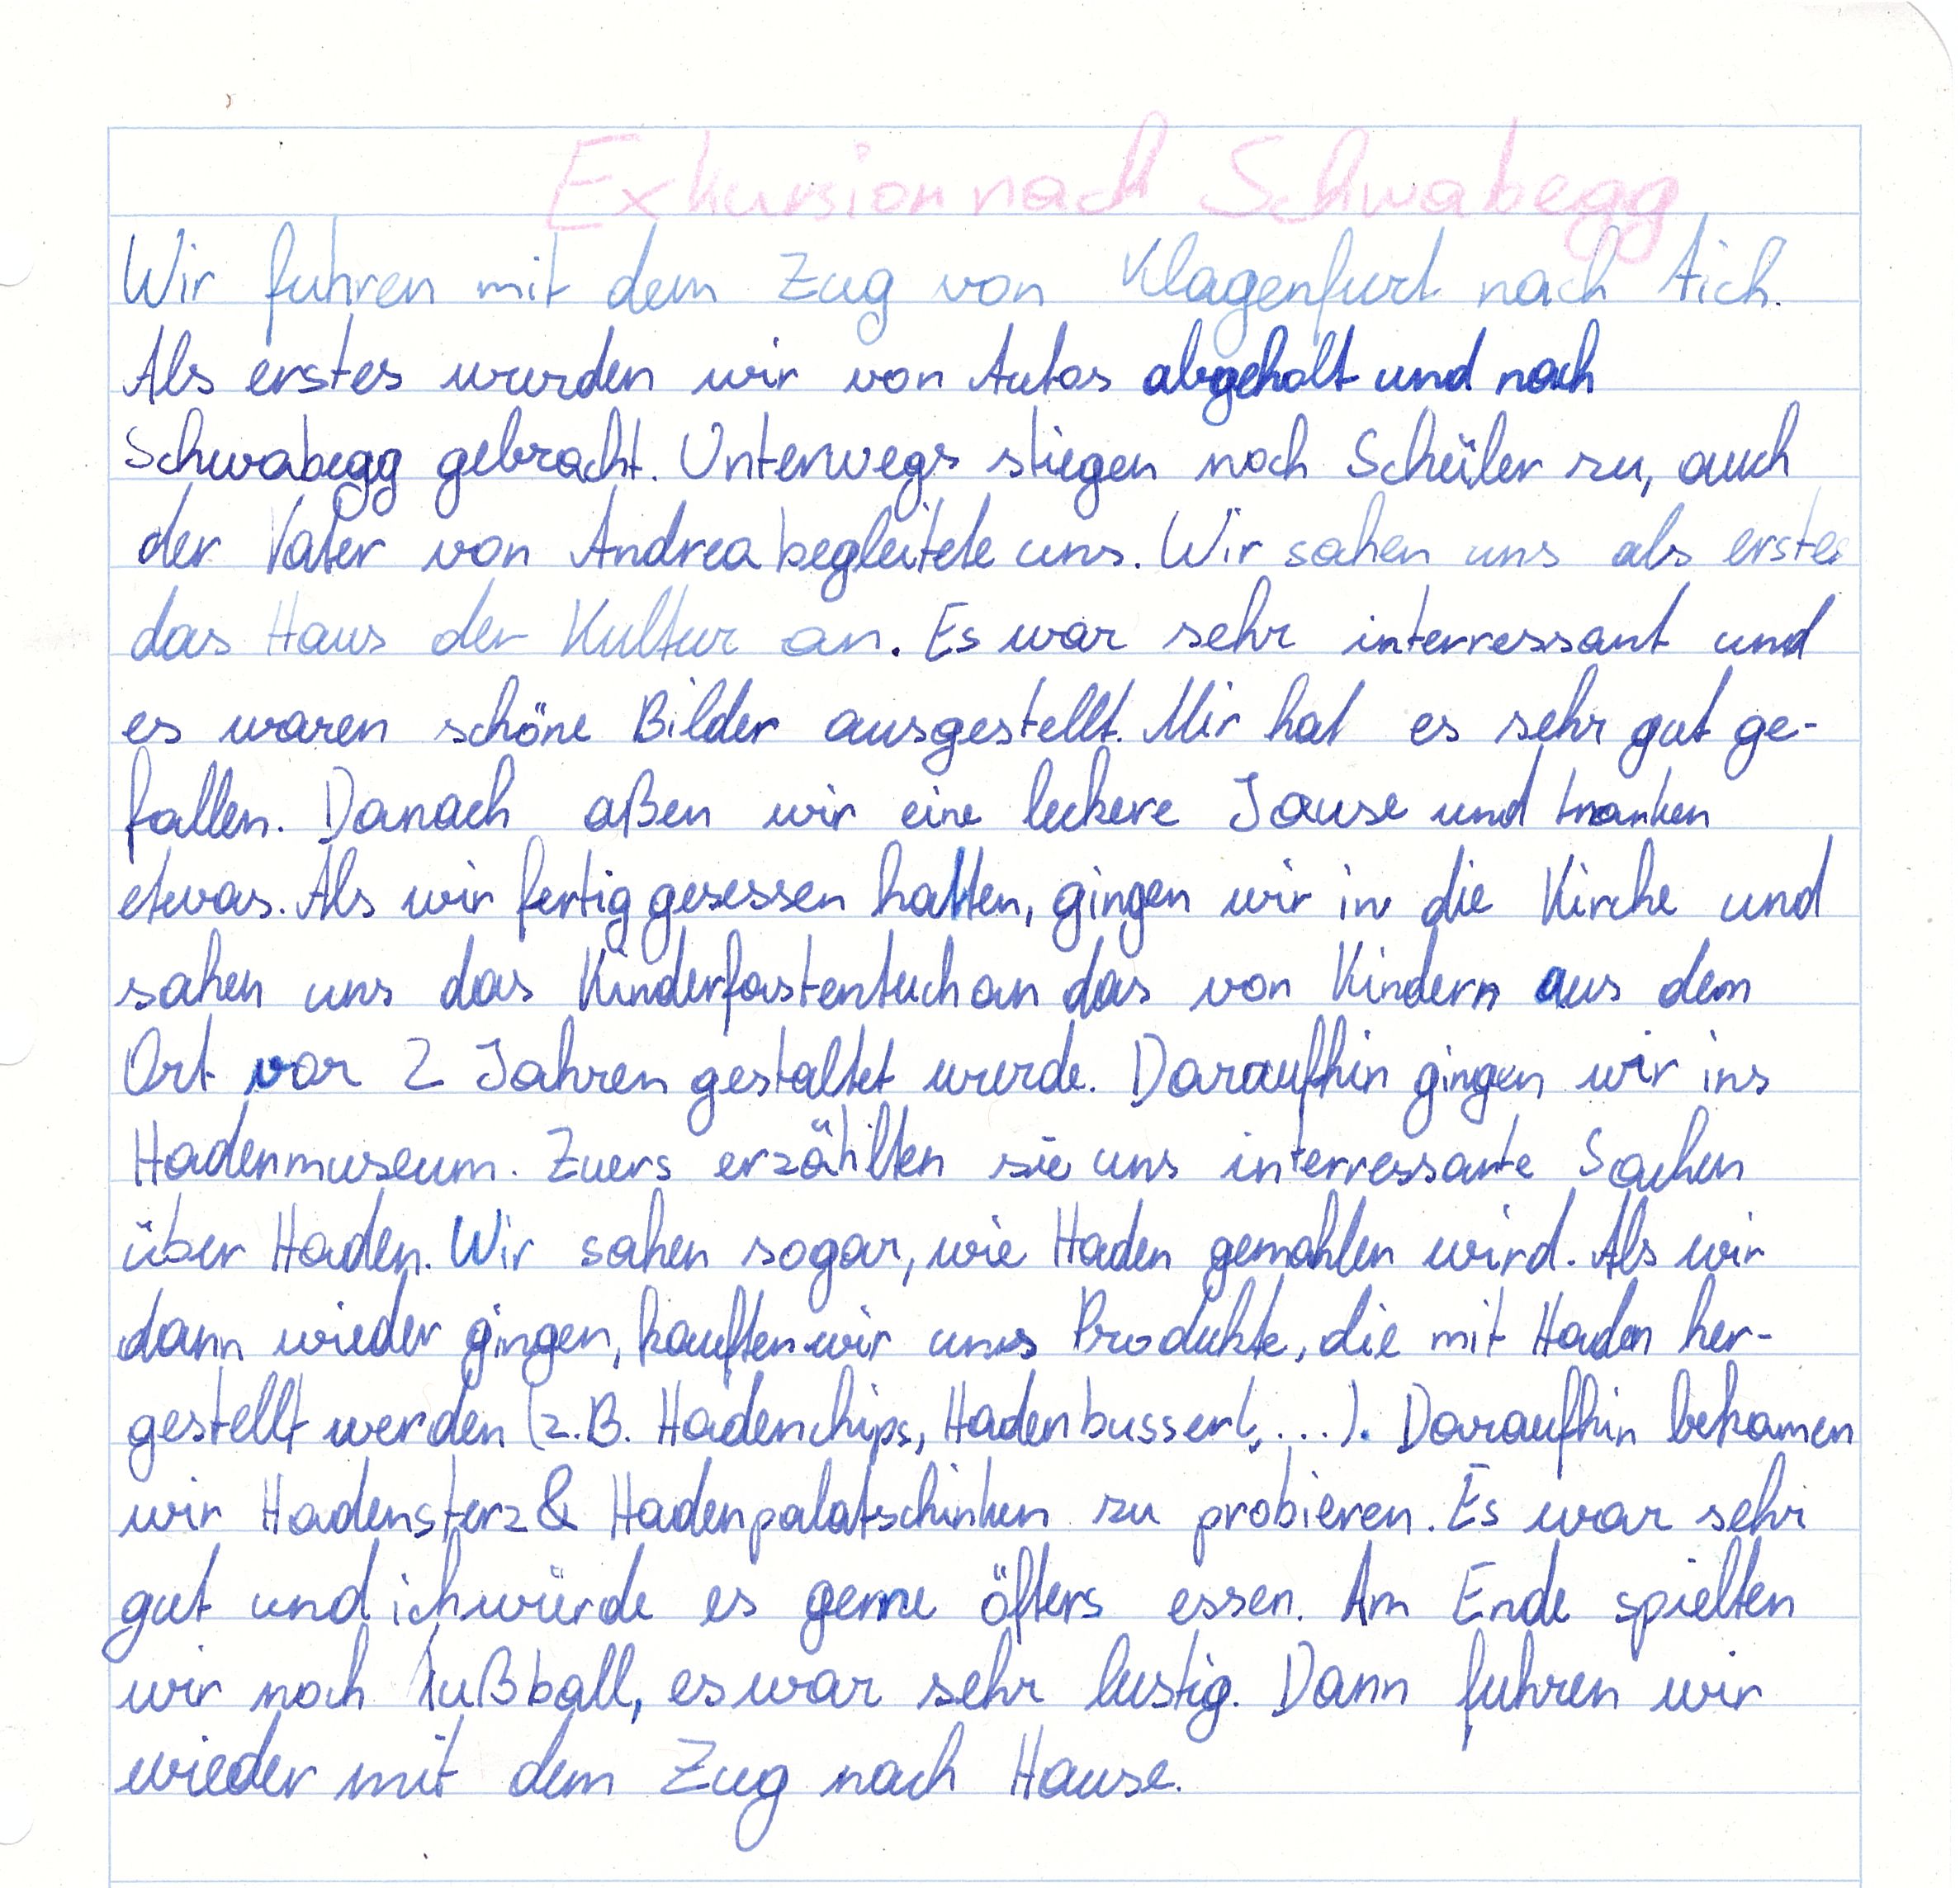 Exkursion nach Schwabegg
Wir fuhren mit dem Zug von Klagenfurt nach Aich.
Als erstes wurden wir von Autos abgeholt und nach
Schwabegg gebracht. Unterwegs stiegen noch Schüler zu, auch
der Vater von Andrea begleitete uns. Wir sahen uns als erstes
das Haus der Kultur an. Es war sehr interressant und
es waren schöne Bilder ausgestellt. Mir hat es sehr gut ge-
fallen. Danach aßen wir eine leckere Jause und tranken
etwas. Als wir fertig gegessen hatten, gingen wir in die Kirche und
sahen uns das Kinderfastentuch an das von Kindern aus dem
Ort vor 2 Jahren gestaltet wurde. Daraufhin gingen wir ins
Hadenmuseum. Zuers erzählten sie uns interressante Sachen
über Haden. Wir sahen sogar, wie Haden gemahlen wird. Als wir
dann wieder gingen, kauften wir uns Produkte, die mit Haden her-
gestellt werden (z.B. Hadenchips, Hadenbusserl, ...). Daraufhin bekamen
wir Hadensterz & Hadenpalatschinken zu probieren. Es war sehr
gut und ich würde es gerne öfters essen. Am Ende spielten
wir noch Fußball, es war sehr lustig. Dann fuhren wir
wieder mit dem Zug nach Hause.